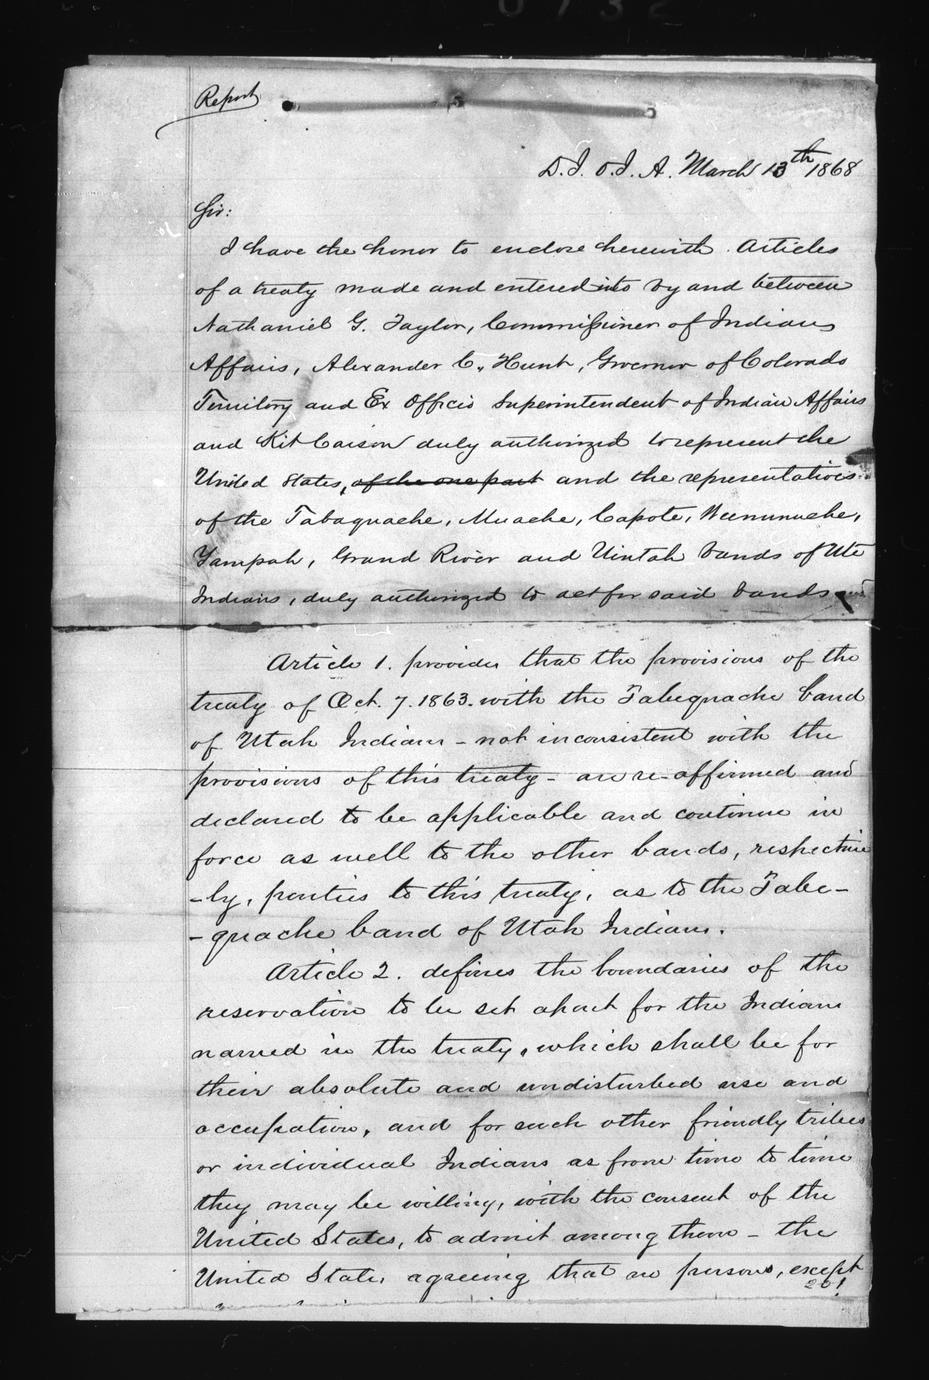 Report
D. I. O. I. A. March 13th 1868
Sir:
I have the honor to enclose herewith Articles
of a treaty made and entered into by and between
Nathaniel G. Taylor, Commissioner of Indian
Affairs, Alexander C. Hunt, Governor of Colorado
Territory and Ex Officio Superintendent of Indian Affairs
and Kit Carson duly authorized to represent the
United States, of the one part and the representatives
of the Tabaquache, Muache, Capote, Weeminuche,
Yampah, Grand River and Uintah bands of Ute
Indians, duly authorized to act for said bands
Article 1. provides that the provisions of the
treaty of Oct. 7. 1863. with the Tabequache band
of Utah Indians - not inconsistent with the
provisions of this treaty - are re-affirmed and
declared to be applicable and continue in
force as well to the other bands, respective
-ly, parties to this treaty, as to the Tabe-
-quache band of Utah Indians.
Article 2. defines the boundaries of the
reservation to be set apart for the Indians
named in the treaty, which shall be for
their absolute and undisturbed use and
occupation, and for such other friendly tribes
or individual Indians as from time to time
they may be willing, with the consent of the
United States, to admit among them - the
United States agreeing that no persons, except
201